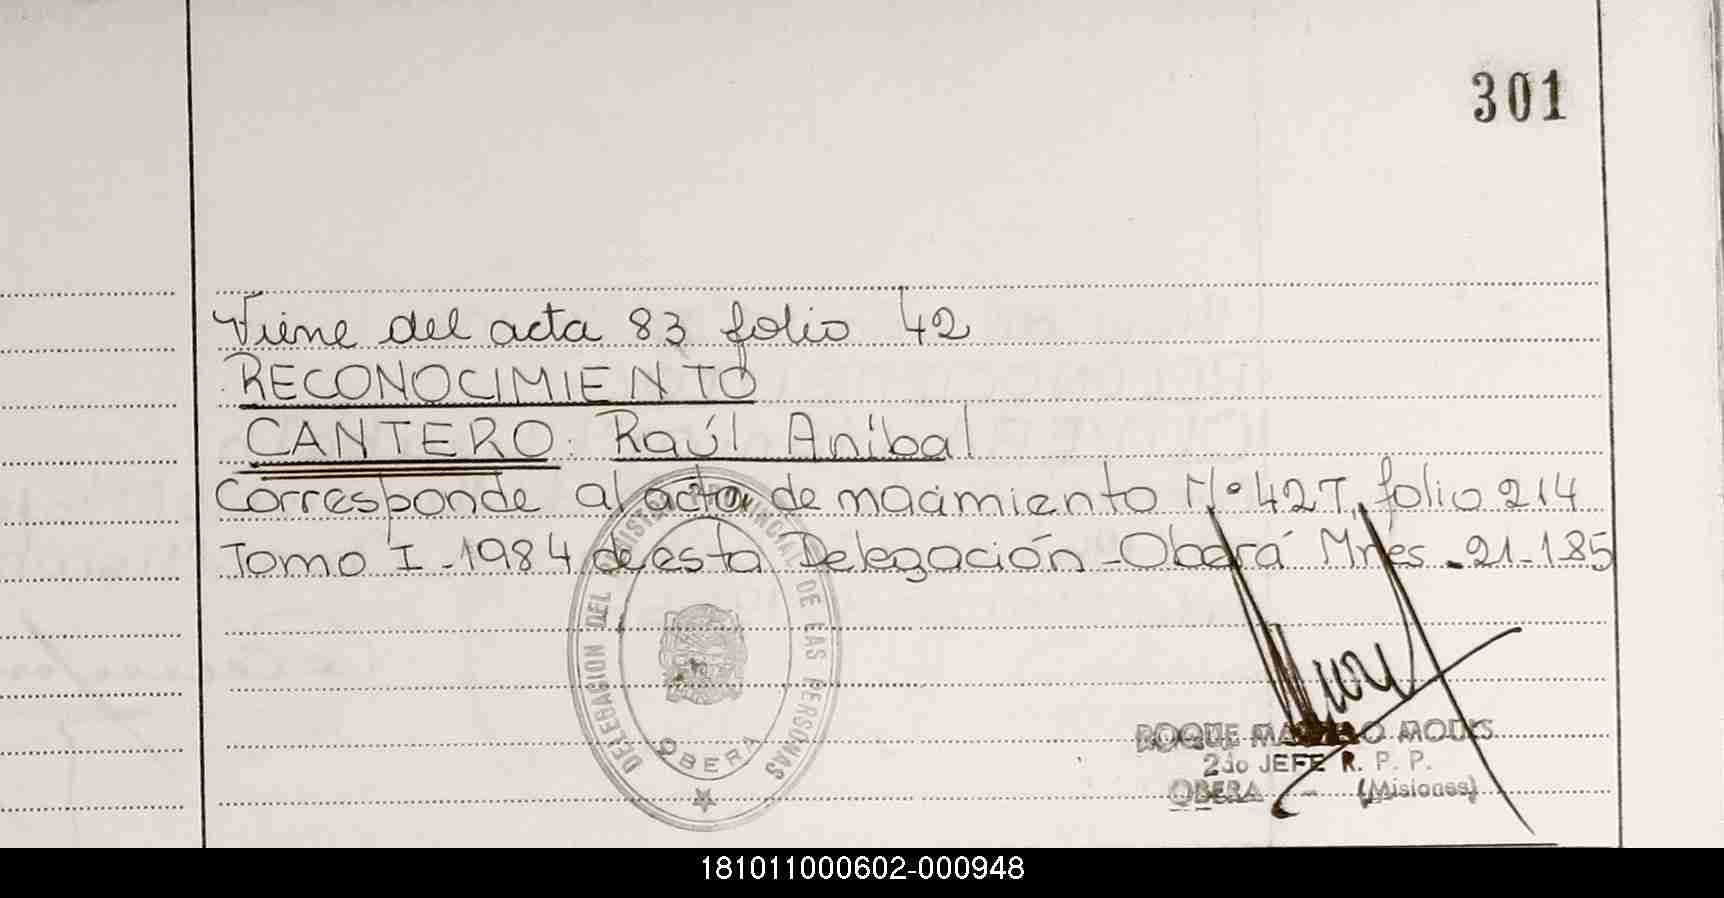 301
Viene del acta 83 folio 42
RECONOCIMIENTO
CANTERO: Raúl Aníbal
Corresponde al acta de nacimiento Nº 427, folio 214
Tomo I - 1984 de esta Delegación - Oberá Mnes - 21-1-85
DELEGACION DEL REGISTRO PROVINCIAL DE LAS PERSONAS
OBERA
ROQUE MODIS
2do JEFE R. P. P.
OBERA - (Misiones)
181011000602-000948